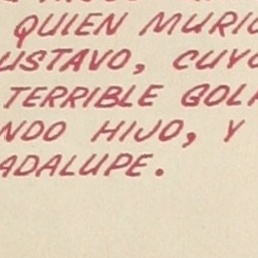 QUIEN MURIO
USTAVO, CUYO
TERRIBLE GOL
NDO HIJO, Y
ADALUPE.